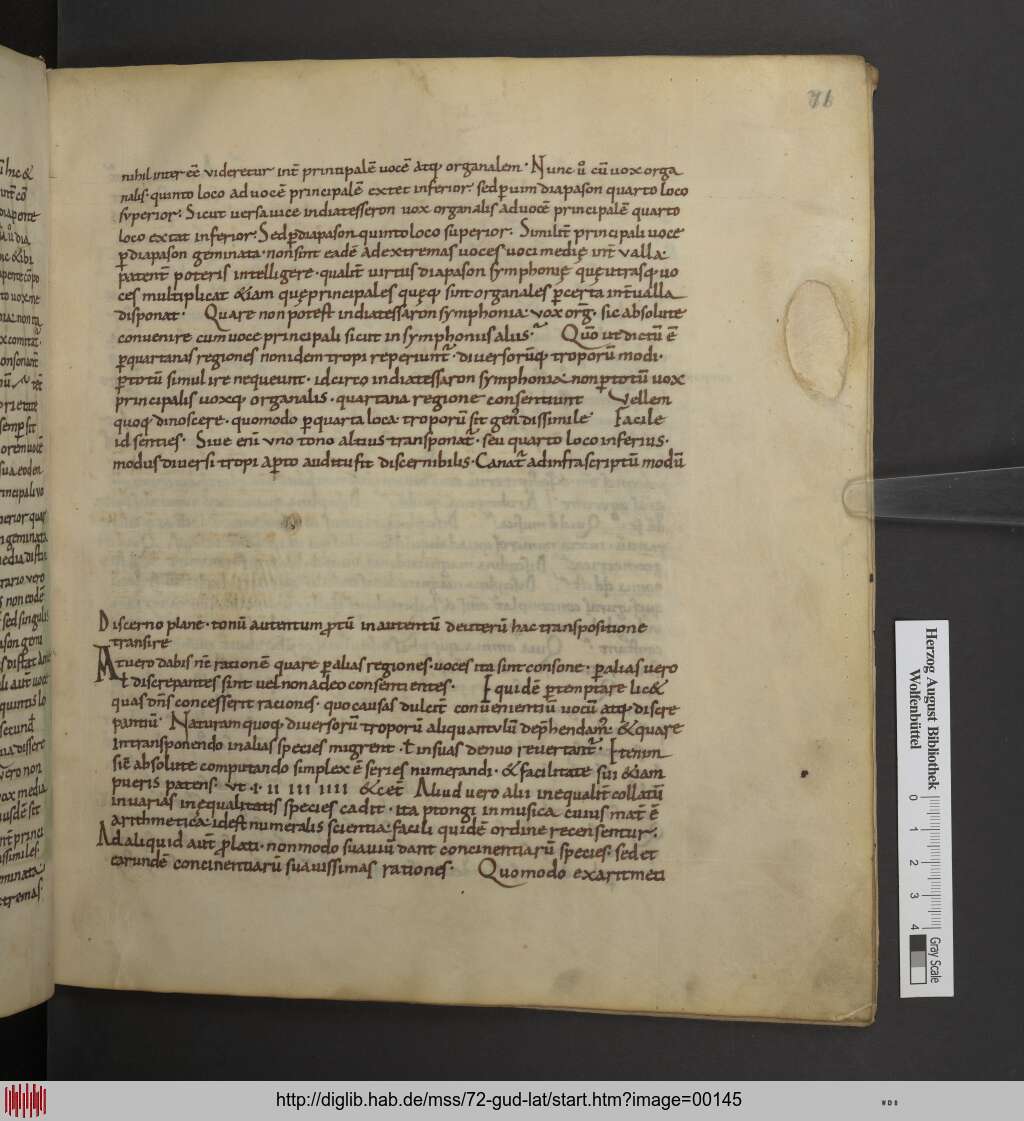 71
nihil inter eē videretur int̄ principalē uocē atq; organalem. Nunc ů cū uox orga
nalis. quinto loco ad uocē principalē extet inferior sed p uim diapason quarto loco
superior: Sicut uersa uice in diatesseron uox organalis ad uocē principalē quarto
loco extat inferior. Sed p diapason quinto loco superior. Similit̄ principali uoce
p diapason geminata. non sint eadē ad extremas uoces uoci medię int̄ ualla.
patent̄ poteris intelligere. qualit̄ uirtus diapason symphonię quę utrasq; uo
ces multiplicat &iam quę principales quęq; sint organales p certa int̄ualla
disponat. Quare non potest in diatessaron symphonia. vox orḡ. sic absolute
conuenire cum uoce principali sicut in symphoniis aliis. Quō ut dictū ē
p quartanas regiones non idem tropi reperiunt̄. diuersorūq; troporū modi.
p totū simul ire nequeunt. idcirco in diatessaron symphonia non p totū uox
principalis uoxq; organalis. quartana regione consentiunt Vellem
quoq; dinoscere. quomodo p quarta loca troporū sit gen̄ dissimile Facile
id senties. Siue enī uno tono altius transponat̄. seu quarto loco inferius.
modus diuersi tropi apto auditu fit discernibilis. Canat̄ ad infra scriptū modū
Discerno plane. tonū autentum protū in autentū deuterū hac transpositione
transire
At uero dabis nē rationē quare p alias regiones. uoces ita sint consone. p alias uero
ł discrepantes sint uel non adeo consentientes. Equidē ptemptare lic&
quas dn̄s concesserit raciones. quo causas dulcit̄ conuenientiū uocū atq; discre
pantiū. Naturam quoq; diuersorū troporū aliquantulū dep̄hendam; &quare
in transponendo in alias species migrent. ł in suas denuo reuertant̄. Itenim
sic̄ absolute computando simplex ē series numerandi. & facilitate sui &iam
pueris patens. ut .I. II III IIII & cet̄ Aliud uero alii inequalit̄ collatū
in uarias inequalitatis species cadit. ita ptongi in musica cuius mat̄ ē
arithmetica. id est numeralis scientia. facili quidē ordine recensentur.
Ad aliquid aut̄ plati. non modo suauiū dant concinentiarū species. sed et
earundē concinentiarū suauissimas rationes. Quomodo ex aritmeti
Herzog August Bibliothek
Wolfenbüttel
0 1 2 3 4
Gray Scale
http://diglib.hab.de/mss/72-gud-lat/start.htm?image=00145